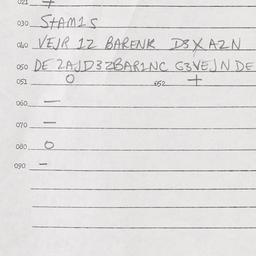 021 +
030 StAM1S
040 VEJR 12 BARENK D8XA2N
050 DE 2AJD3ZBAR1NC G3VEJN DE
051 O 052 +
060 —
070 —
080 O
090 -